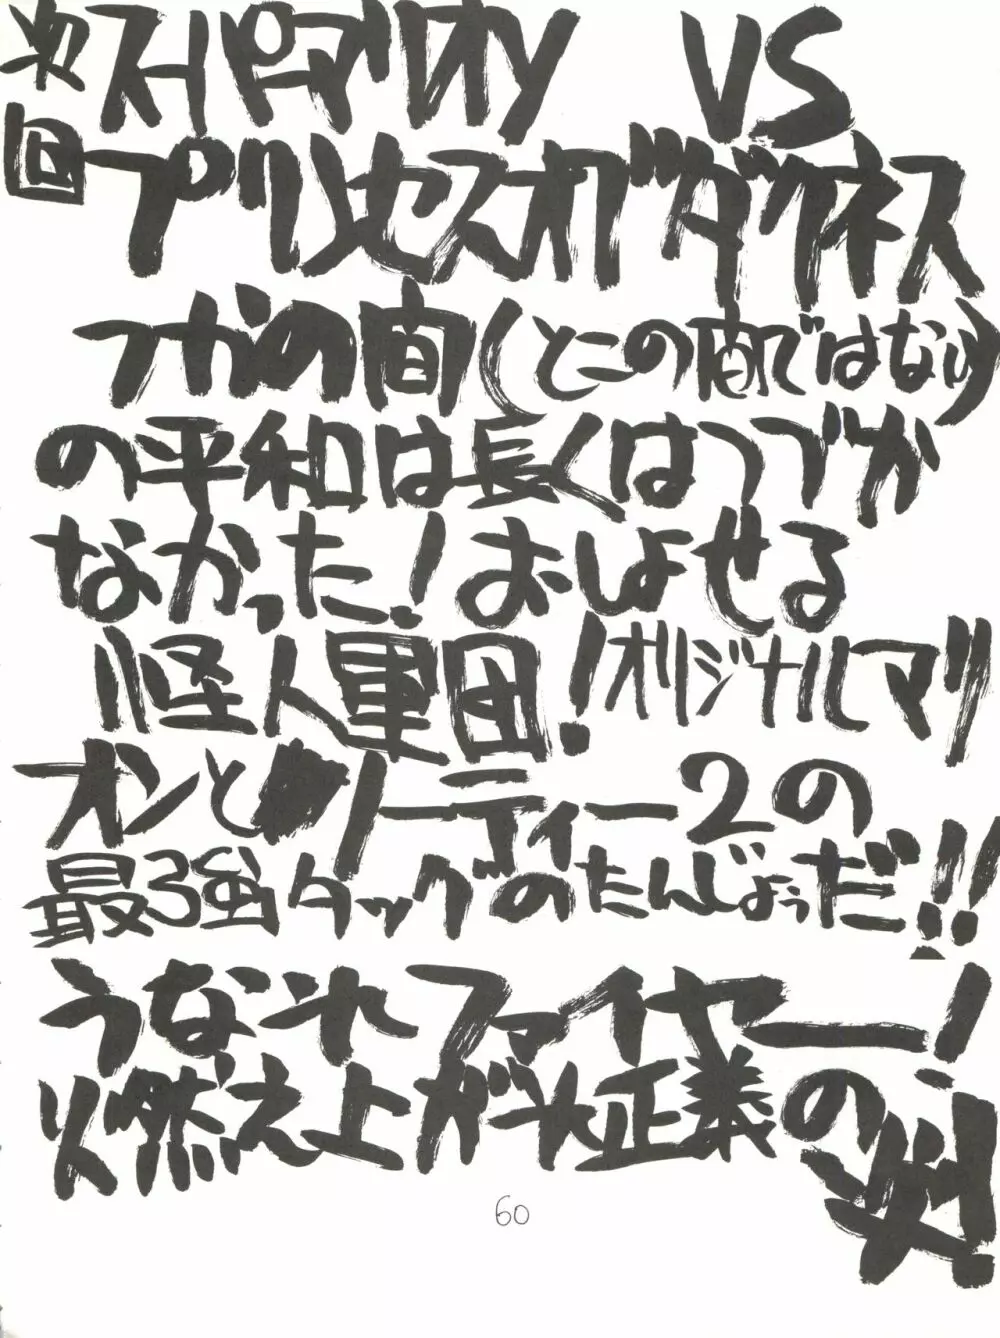 次回 スーパーマリオン VS
プリンセスオブダークネス
つかの間(とこの間ではない)
の平和は長くはつづか
なかった!おしよせる
怪人軍団!オリジナルマリ
オンとマリーティー2の
最強タッグのたんじょうだ!!
うなれファイヤー!
燃え上がれ正義の炎!
60